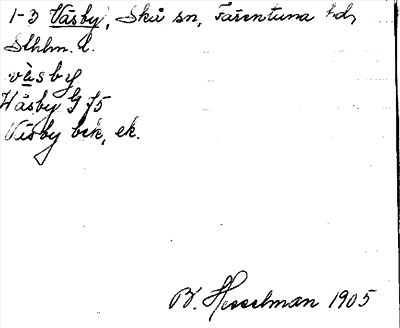 1-3 Väsby, Skå sn, Färentuna hd,
Sthlm. l.
vä̀sby
Wåsby G f5
Väsby bek, ek.
B. Hesselman 1905